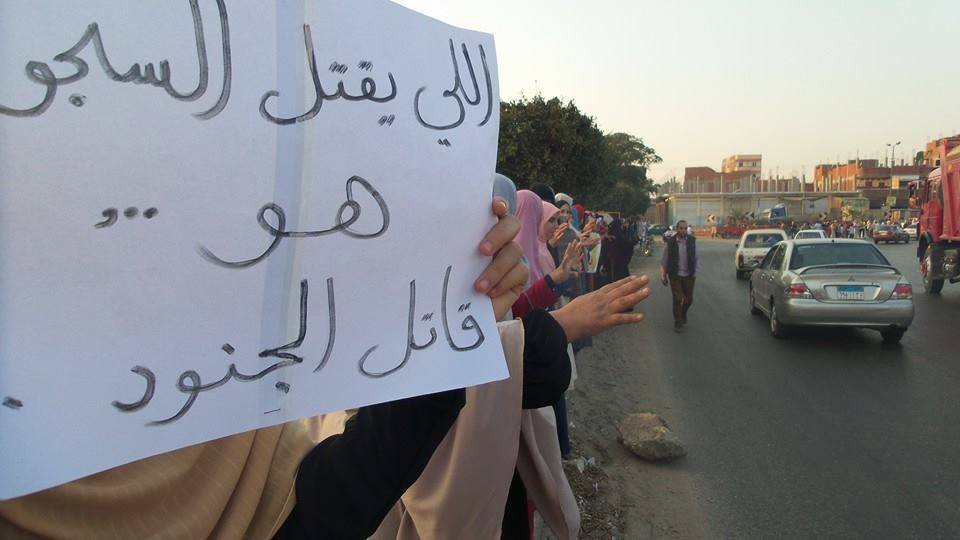 اللي يقتل السجو
هو ...
قاتل الجنود .